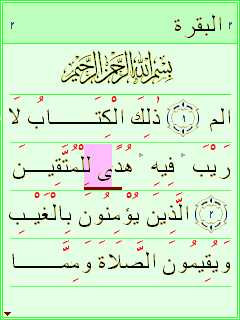 ٢ البقرة ٢
بِسْمِ اللَّهِ الرَّحْمَٰنِ الرَّحِيمِ
الم ۝١ ذَٰلِكَ الْكِتَـــابُ لَا
رَيْبَ ۛ فِيهِ ۛ هُدًى لِلْمُتَّقِيـنَ
۝٢ الَّذِينَ يُؤْمِنُونَ بِالْغَيْبِ
وَيُقِيمُونَ الصَّلَاةَ وَمِمَّـــا